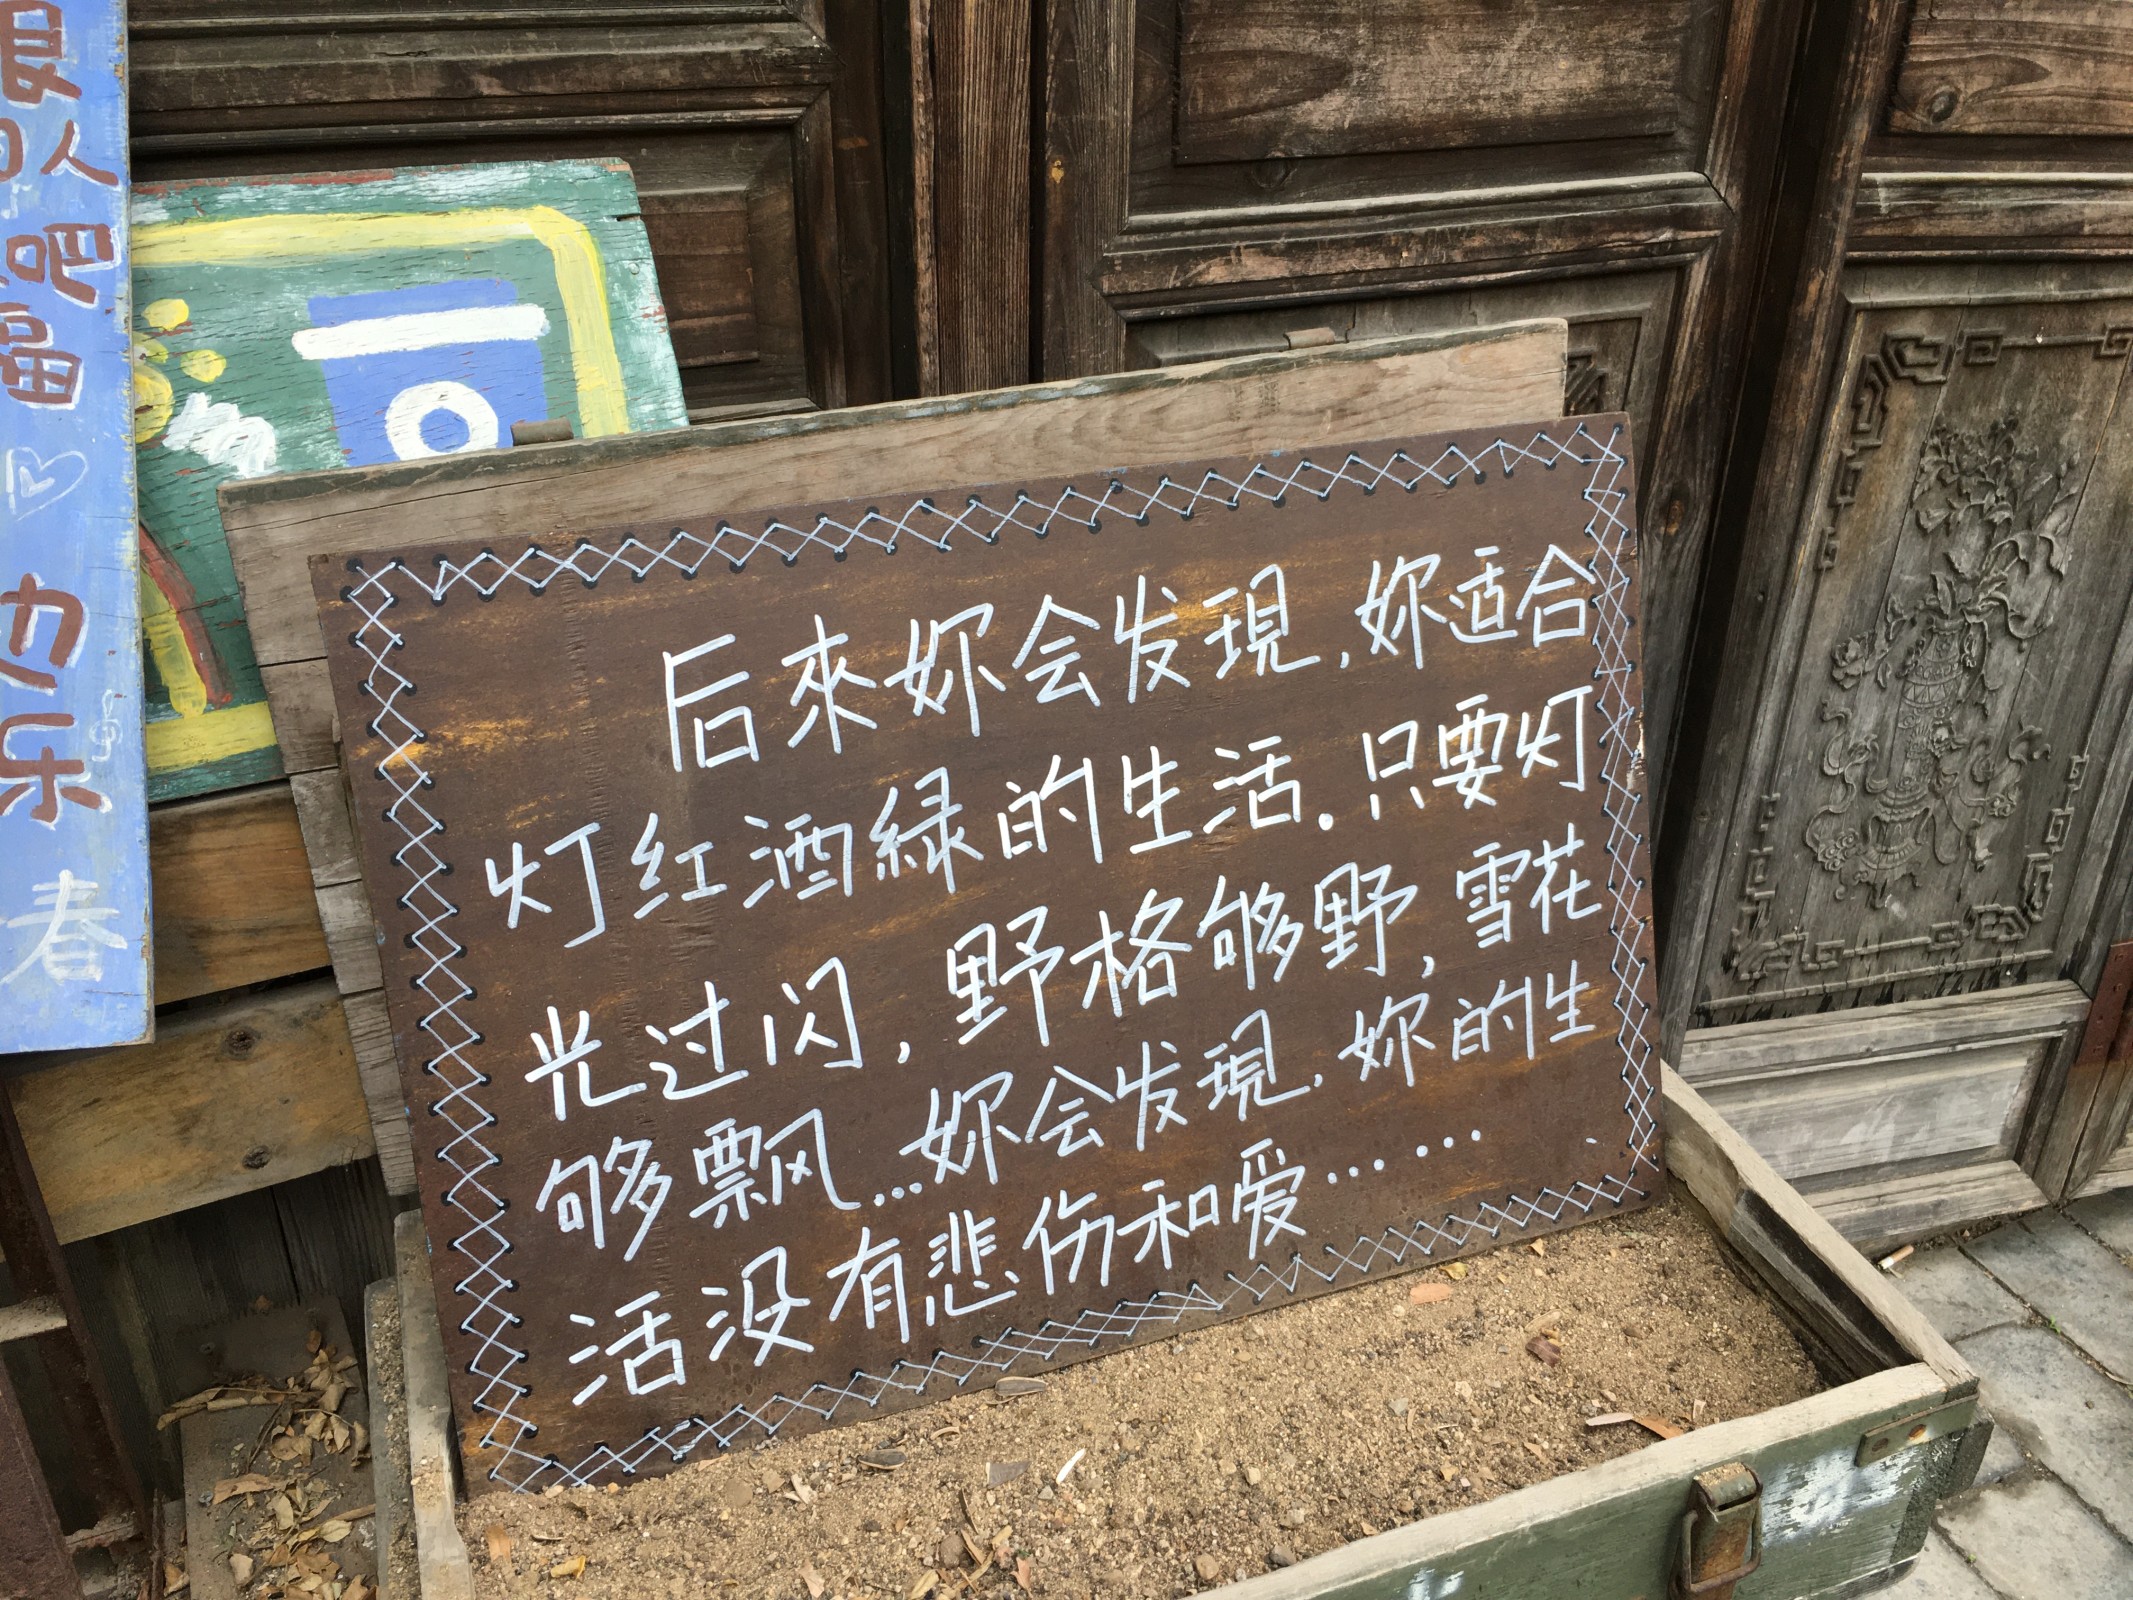 人
吧
福
边
乐
春
后來妳会发現,妳适合
灯红酒緑的生活.只要灯
光过闪,野格够野,雪花
够飘...妳会发現,妳的生
活没有悲伤和爱……